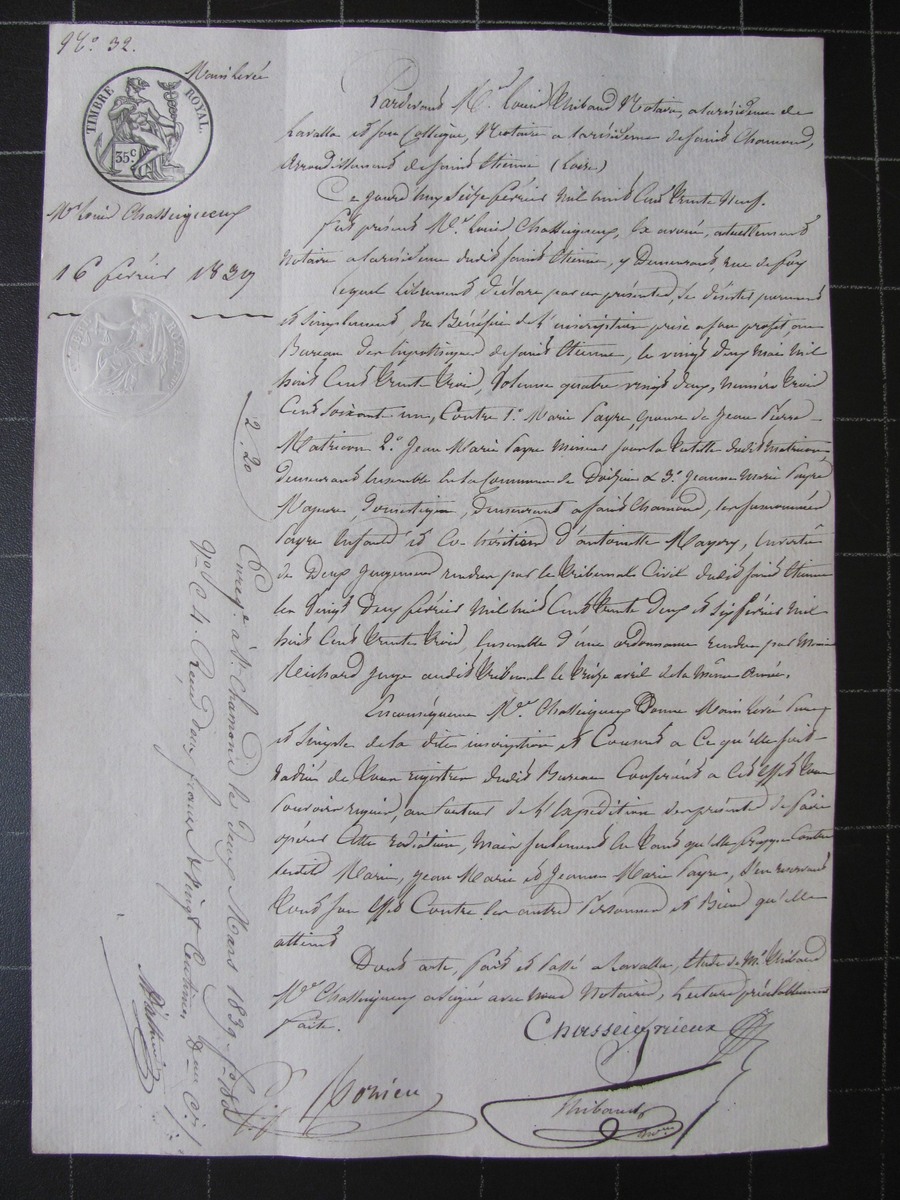 N.o 32.
Main levée
TIMBRE ROYAL.
35 c
Mr Louis Chasseigneux
16 février 1839
Pardevant Mr. Louis Thibaud Notaire, a la résidence de
Lavalla et son Collègue, Notaire a la résidence de saint Chamond,
arrondissement de saint Etienne (Loire)
Ce jourd'huy seize février mil huit cent trente neuf.
fut présent Mr. Louis Chasseigneux, Ex avoué, actuellement
Notaire a la résidence dudit saint Etienne, y demeurant, rue de foy
Lequel librement déclare par ces présentes, se désister purement
et simplement du Bénéfice de l'inscription prise a son profit au
Bureau des hypothèques de saint Etienne, le vingt deux mai mil
huit cent trente trois, Volume quatre vingt deux, numéro trois
cent soixante un, Contre 1.o Marie Payre, épouse de Jean Pierre
Matricon 2.o Jean Marie Payre mineur sous la tutelle dudit Matricon
demeurant ensemble en la Commune de Doizieu & 3.o Jeanne Marie Payre
Majeure domestique, demeurant a saint Chamond, les susnommés
Payre Enfants et Co-héritiers d'antoinette Mayery, en vertu
de Deux jugements rendus par le tribunal Civil dudit saint Etienne
les vingt deux février mil huit cent trente deux et six février mil
huit cent trente trois, ensemble d'une ordonnance rendue par
Reichard juge audit tribunal le treize avril de la même année.
En conséquence Mr. Chasseigneux Donne Main levée pure
et simple de la dite inscription et Consent a ce qu'elle soit
radiée de tous registres dudit Bureau Conférant a cet effet tous
pouvoirs requis, au porteur de l'Expédition des présentes de faire
opérer cette radiation, mais seulement en tant qu'elle frappe contre
lesdits Marie, Jean Marie et Jeanne Marie Payre, s'en reservant
tout son effet Contre les autres Personnes et Biens qu'elle
atteint
Dont acte, fait et Passé a Lavalla, étude de Mr Thibaud
Mr Chasseigneux a signé avec nous Notaires, Lecture préalablement
faite.
Chasseigneux
Thibaud
2.20
Enreg. à St. Chamond le deux Mars 1839. fo 182
Vo C 4. Reçu deux francs & vingt Centimes,